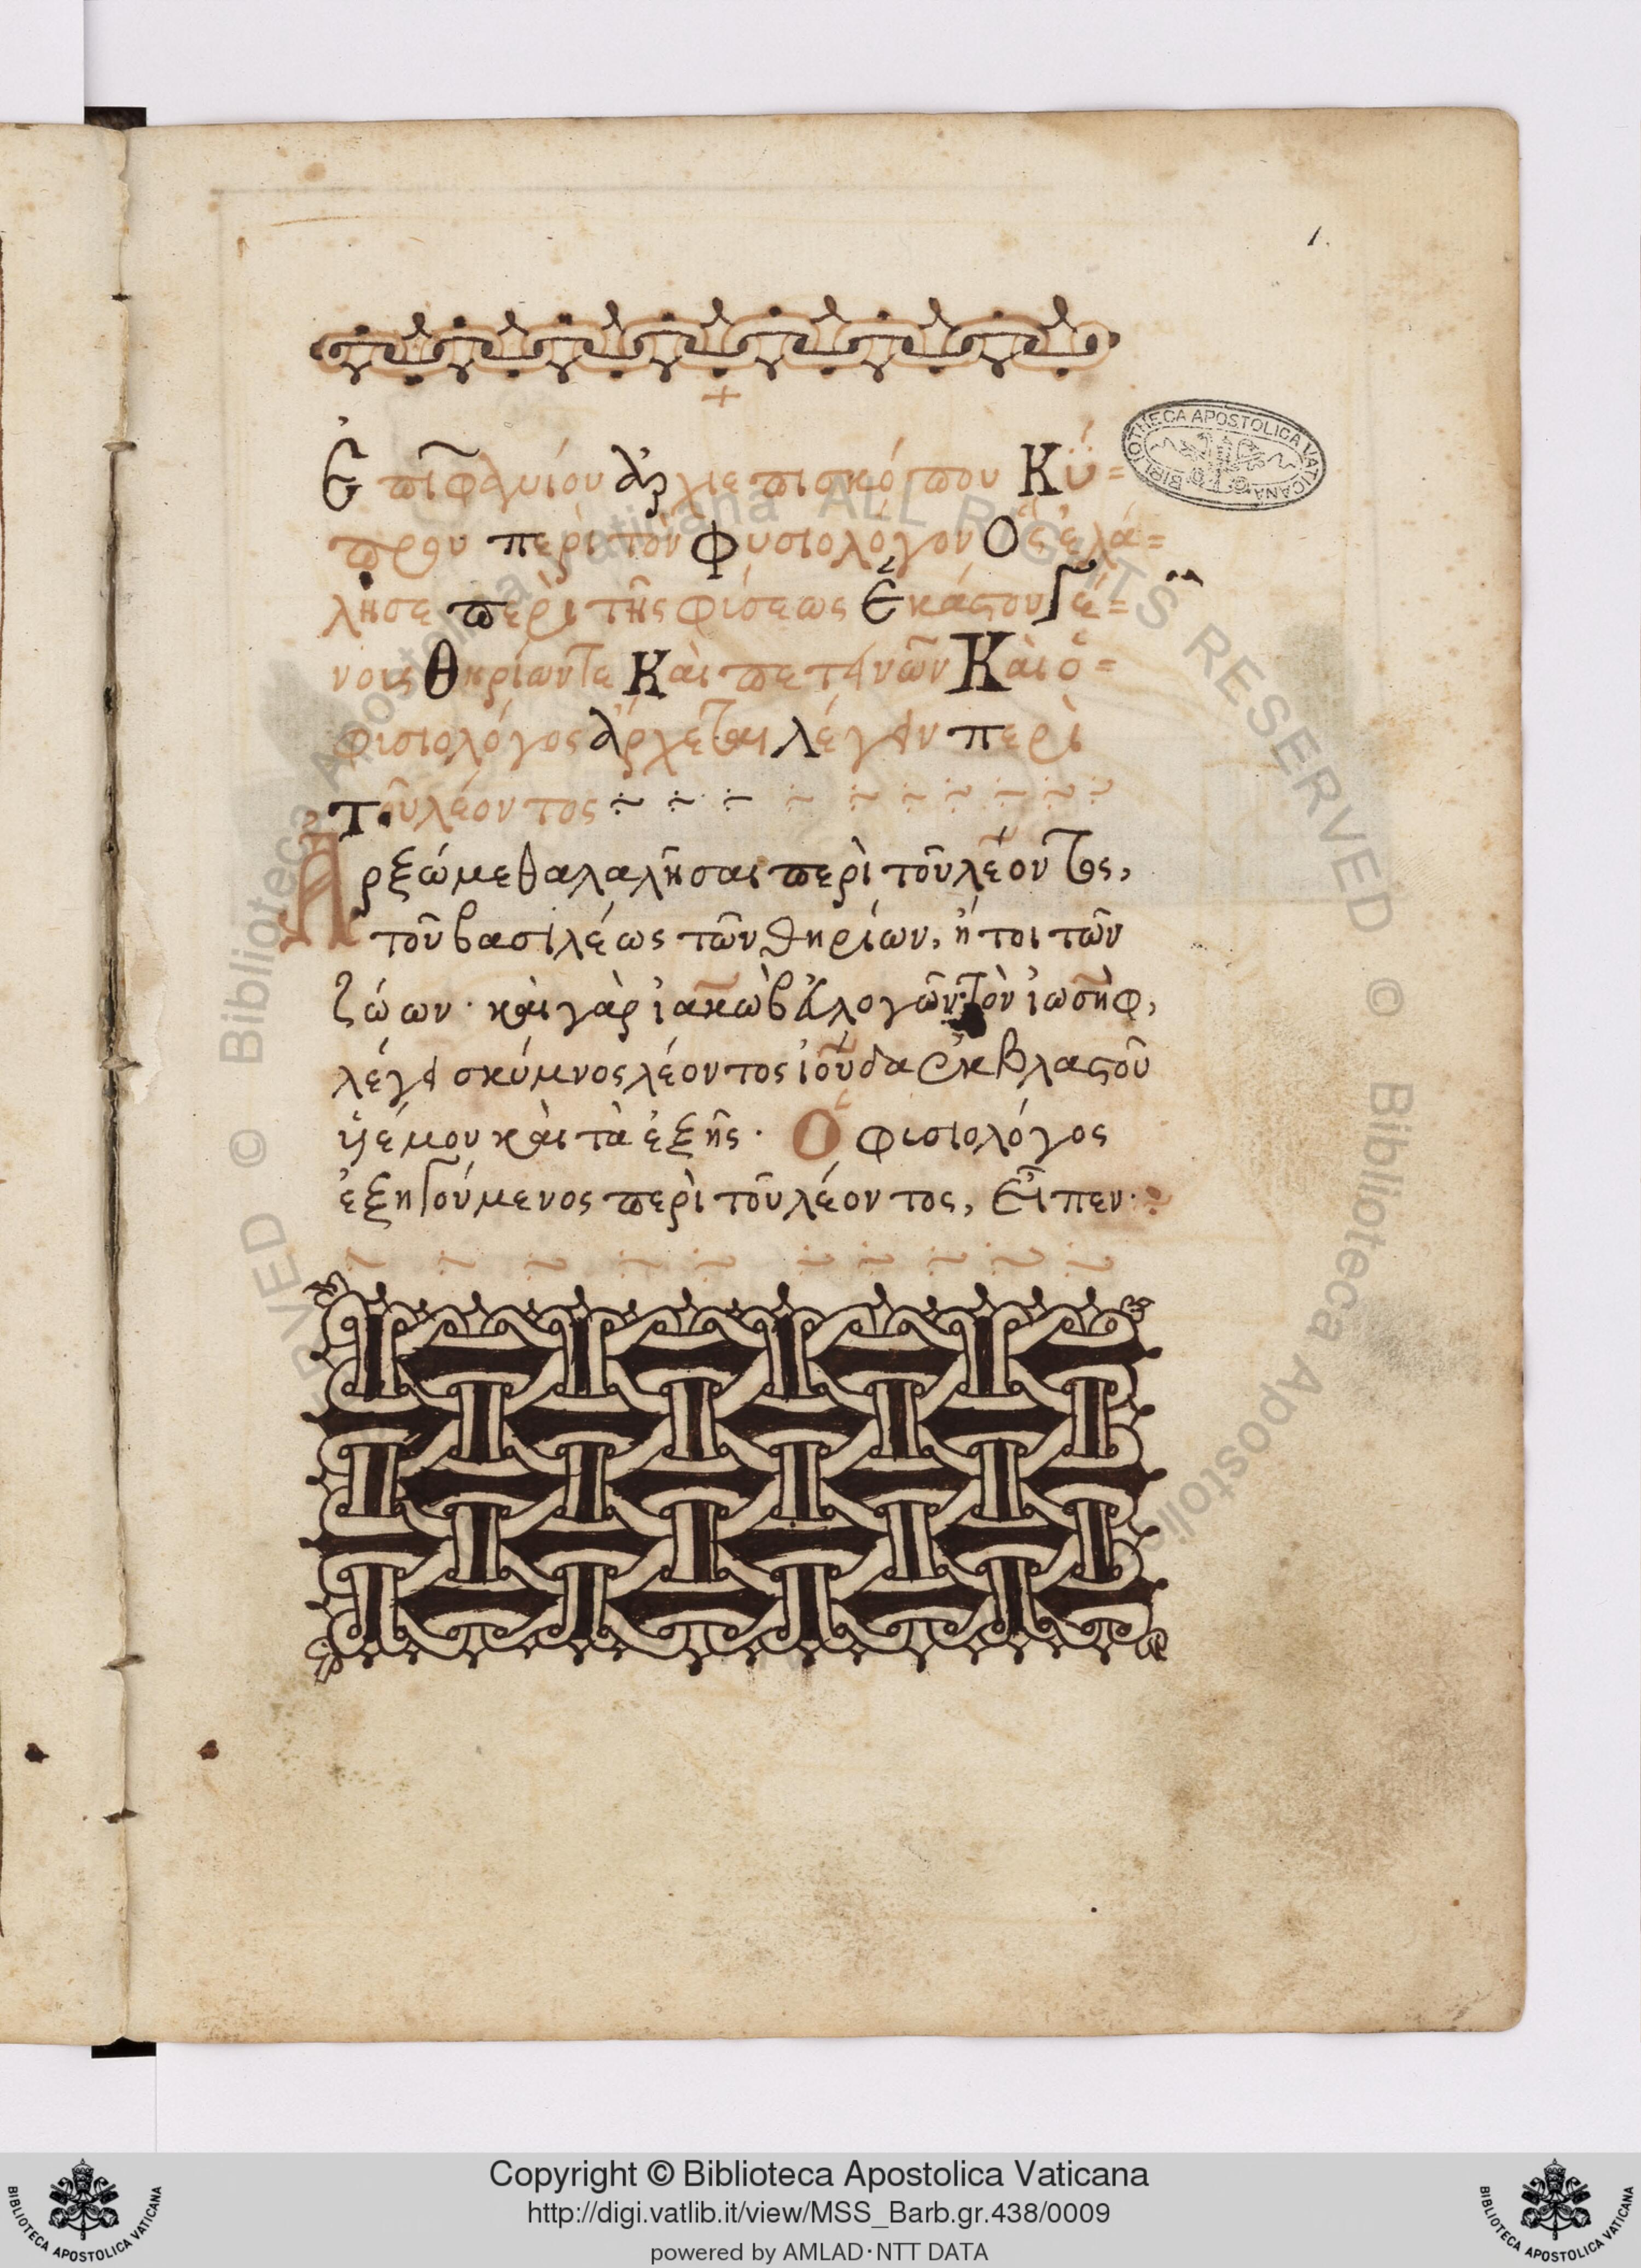 1.
Ἐπιφανίου ἀρχιεπισκόπου Κύ=
πρου περὶ τὸν Φυσιολόγον Ὃς ἐλά=
λησε περὶ τῆς φίσεως Ἑκάστου Γέ=
νοις Θηρίων τε Καὶ πετεινῶν Καὶ ὁ=
φισιολόγος ἄρχεται λέγειν περὶ
τοῦ λέοντος
Ἀρξώμεθα λαλῆσαι περὶ τοῦ λέοντος,
τοῦ βασιλέως τῶν θηρίων, ἤτοι τῶν
ζώων · καὶ γὰρ ἰακὼβ εὐλογῶν τὸν ἰωσὴφ,
λέγει σκύμνος λέοντος ἰούδα ἐκ βλαστοῦ
ὑέ μου καὶ τὰ ἑξῆς · Ὁ φισιολόγος
ἐξηγούμενος περὶ τοῦ λέοντος, Εἶπεν·
BIBLIOTHECA APOSTOLICA VATICANA
© Biblioteca Apostolica Vaticana ALL RIGHTS RESERVED © Biblioteca Apostolica
Copyright © Biblioteca Apostolica Vaticana
http://digi.vatlib.it/view/MSS_Barb.gr.438/0009
powered by AMLAD·NTT DATA
BIBLIOTECA APOSTOLICA VATICANA
BIBLIOTECA APOSTOLICA VATICANA